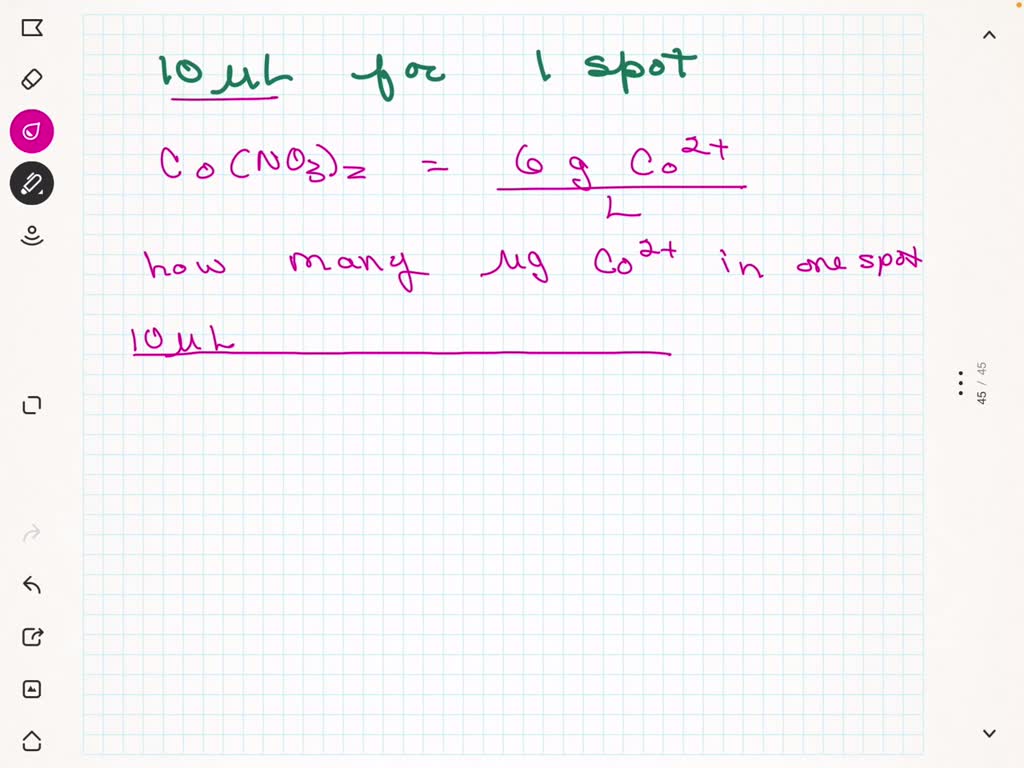 10 µL for 1 spot
Co(NO3)2 = 6 g Co2+
L
how many µg Co2+ in one spot
10 µL
45 / 45